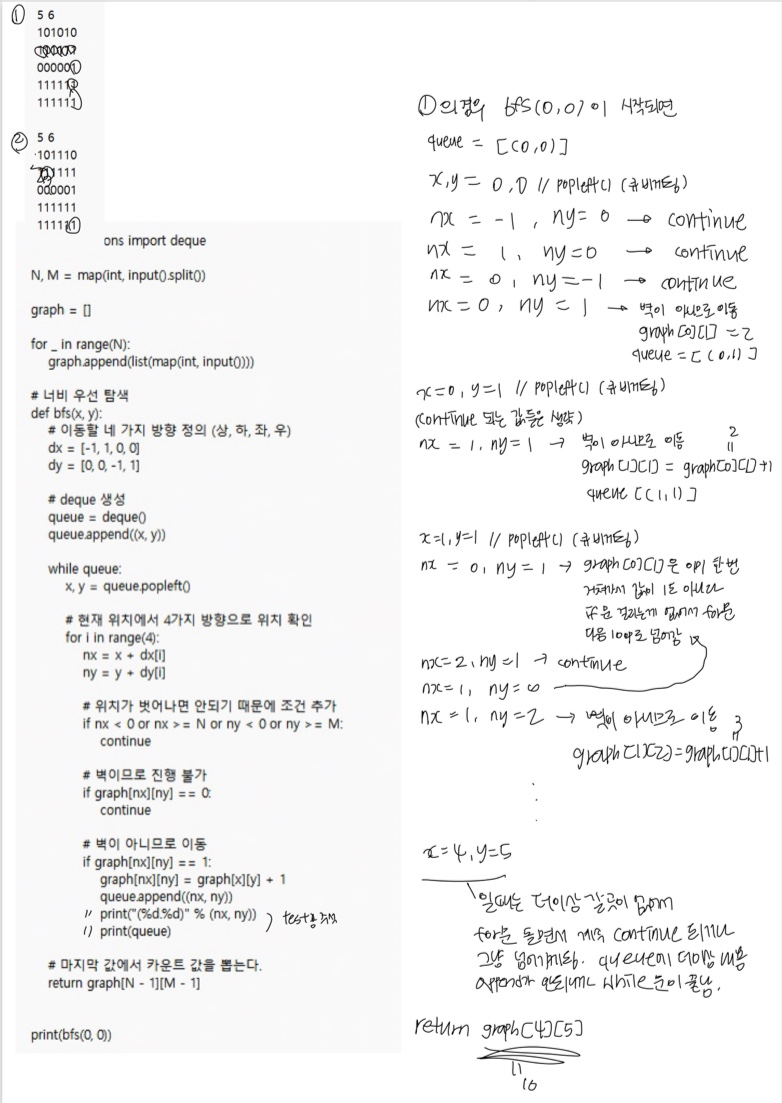 ① 5 6
101010
000001
111111
111111
② 5 6
101110
000001
111111
111111
ons import deque
N, M = map(int, input().split())
graph = []
for _ in range(N):
graph.append(list(map(int, input())))
# 너비 우선 탐색
def bfs(x, y):
# 이동할 네 가지 방향 정의 (상, 하, 좌, 우)
dx = [-1, 1, 0, 0]
dy = [0, 0, -1, 1]
# deque 생성
queue = deque()
queue.append((x, y))
while queue:
x, y = queue.popleft()
# 현재 위치에서 4가지 방향으로 위치 확인
for i in range(4):
nx = x + dx[i]
ny = y + dy[i]
# 위치가 벗어나면 안되기 때문에 조건 추가
if nx < 0 or nx >= N or ny < 0 or ny >= M:
continue
# 벽이므로 진행 불가
if graph[nx][ny] == 0:
continue
# 벽이 아니므로 이동
if graph[nx][ny] == 1:
graph[nx][ny] = graph[x][y] + 1
queue.append((nx, ny))
// print("(%d.%d)" % (nx, ny))
// print(queue)
) test용
# 마지막 값에서 카운트 값을 뽑는다.
return graph[N - 1][M - 1]
print(bfs(0, 0))
①의경우 bfs(0,0)이 시작되면
queue = [(0,0)]
x,y = 0,0 // popleft() (큐비어짐)
nx = -1, ny = 0 → continue
nx = 1, ny = 0 → continue
nx = 0, ny = -1 → continue
nx = 0, ny = 1 → 벽이 아니므로 이동
graph[0][1] = 2
queue = [(0,1)]
x=0, y=1 // popleft() (큐비어짐)
(continue 되는 값들은 생략)
nx = 1, ny = 1 → 벽이 아니므로 이동
2
graph[1][1] = graph[0][1]+1
queue [(1,1)]
x=1, y=1 // popleft() (큐비어짐)
nx = 0, ny = 1 → graph[0][1]은 이미 한번
거쳐가서 값이 1도 아니라
if문 걸리는게 없어서 for문
다음 loop로 넘어감
nx=2, ny=1 → continue
nx=1, ny=0
nx = 1, ny = 2 → 벽이 아니므로 이동
3
graph[1][2]=graph[1][1]+1
x=4, y=5
일때는 더이상 갈곳이 없어서
for문 돌면서 계속 continue 되거나
그냥 넘어가게됨. queue에 더이상 내용
append가 안되니까 while문이 끝남.
return graph[4][5]
10